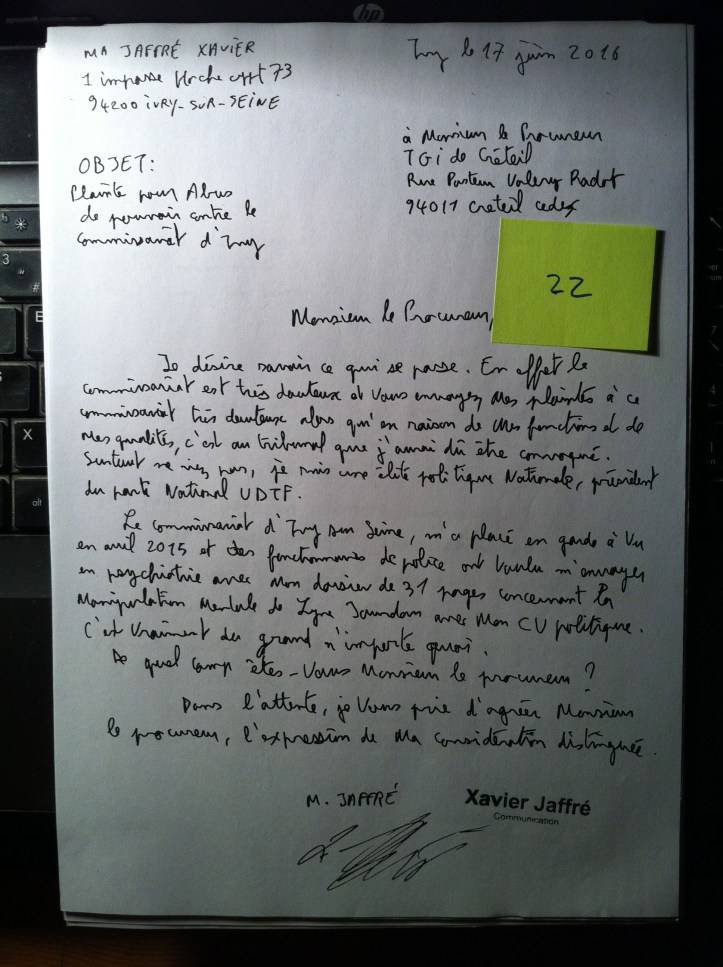 MR JAFFRÉ XAVIER
1 impasse Hoche appt 73
94200 IVRY-SUR-SEINE
Ivry le 17 juin 2016
à Monsieur le Procureur
TGI de Créteil
Rue Pasteur Valery Radot
94011 Creteil cedex
OBJET:
Plainte pour Abus
de pouvoir contre le
commissariat d'Ivry
22
Monsieur le Procureur,
Je désire savoir ce qui se passe. En effet le
commissariat est très douteux et vous envoyez mes plaintes à ce
commissariat très douteux alors qu'en raison de mes fonctions et de
mes qualités, c'est au tribunal que j'aurai dû être convoqué.
Surtout ne riez pas, je suis une élite politique Nationale, président
du parti National UDTF.
Le commissariat d'Ivry sur Seine, m'a placé en garde à Vu
en avril 2015 et des fonctionnaires de police ont voulu m'envoyer
en psychiatrie avec mon dossier de 31 pages concernant la
Manipulation Mentale de avec mon CV politique.
C'est vraiment du grand n'importe quoi.
De quel camp êtes-vous Monsieur le procureur ?
Dans l'attente, je vous prie d'agréer Monsieur
le procureur, l'expression de ma considération distinguée.
M. JAFFRÉ
Xavier Jaffré
Communication
hp
E
X
alt
3
#
b
*